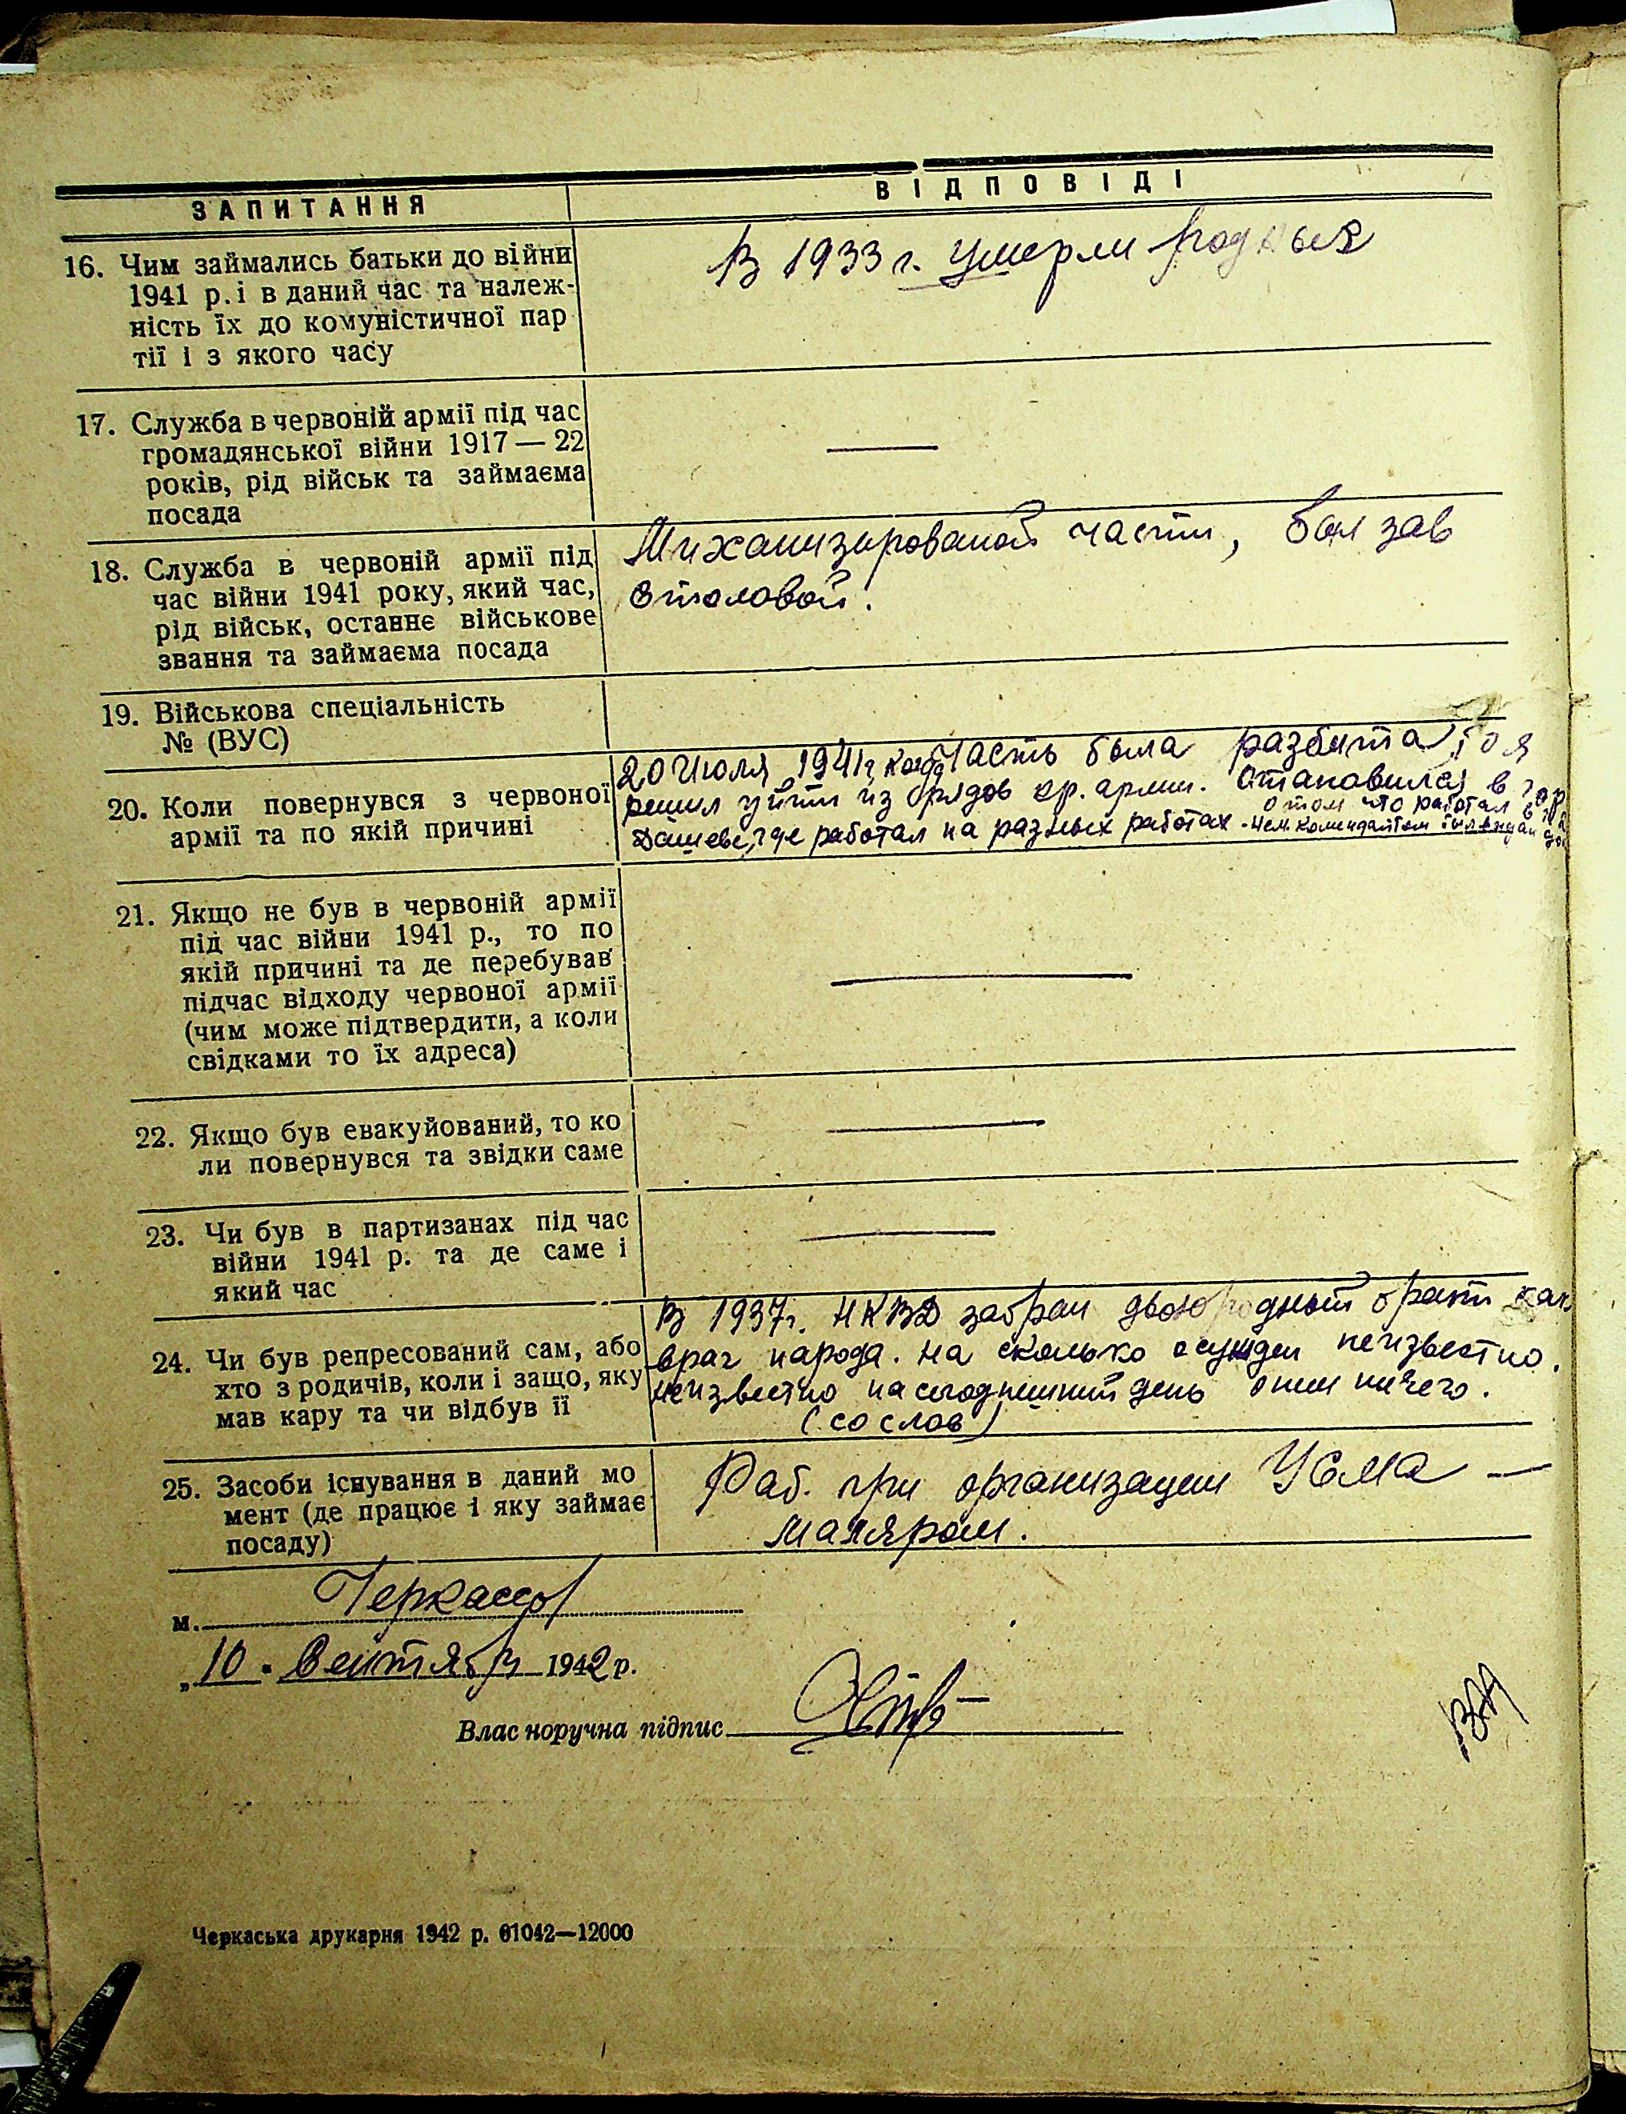 ЗАПИТАННЯ
ВІДПОВІДІ
16. Чим займались батьки до війни
1941 р. і в даний час та належ-
ність їх до комуністичної пар
тії і з якого часу
В 1933 г. умерли родныя
17. Служба в червоній армії під час
громадянської війни 1917 — 22
років, рід військ та займаєма
посада
—
18. Служба в червоній армії під
час війни 1941 року, який час,
рід військ, останнє військове
звання та займаєма посада
Миханизированой части, был зав
столовой.
19. Військова спеціальність
№ (ВУС)
20. Коли повернувся з червоної
армії та по якій причині
20 Июля 1941 г, когда часть была разбита, то я
решил уйти из рядов кр. армии. Становился в гор
Дашеве, где работал на разных работах.
о том что работал в гор
нем. комендатом был выдан
21. Якщо не був в червоній армії
під час війни 1941 р., то по
якій причині та де перебував
підчас відходу червоної армії
(чим може підтвердити, а коли
свідками то їх адреса)
—
22. Якщо був евакуйований, то ко
ли повернувся та звідки саме
—
23. Чи був в партизанах під час
війни 1941 р. та де саме і
який час
—
24. Чи був репресований сам, або
хто з родичів, коли і защо, яку
мав кару та чи відбув її
В 1937 г. НКВД забрал двоюродный брат как
враг народа. на сколько осужден неизвестно.
неизвестно на сегоднешний день о нем ничего.
(со слов)
25. Засоби існування в даний мо
мент (де працює і яку займає
посаду)
Раб. при организации УСМА —
маляром.
м. Черкассы
„10. Сентября 1942 р.
Власноручна підпис
Черкаська друкарня 1942 р. 61042—12000